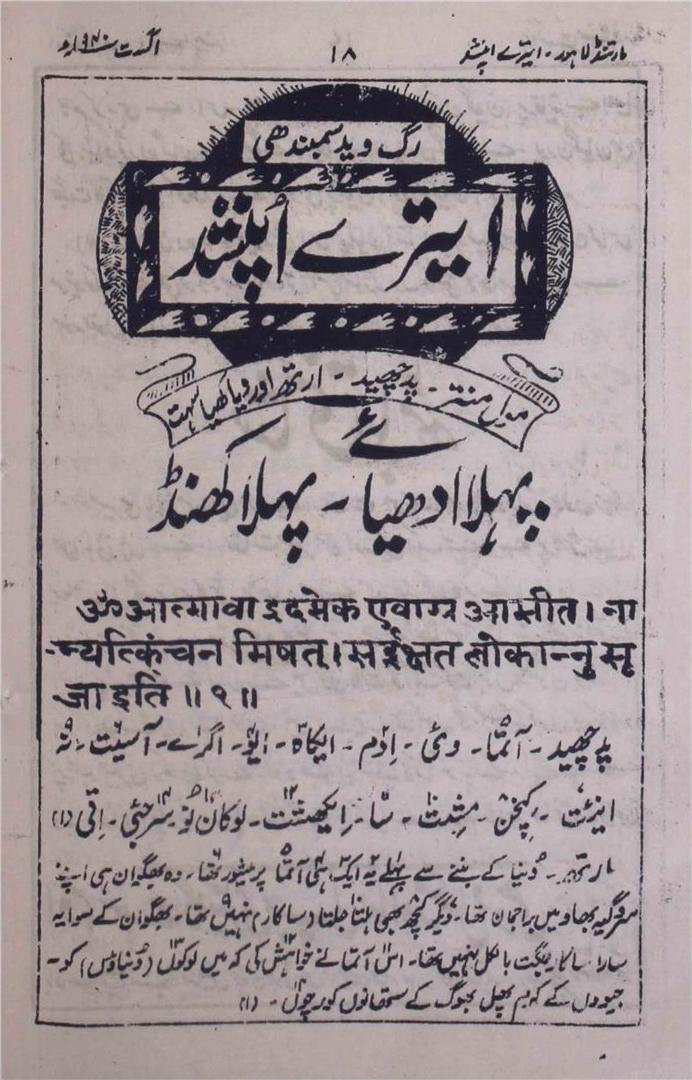 مارتنڈ لاہور - ایترے اپنشد
۱۸
اگست ۱۹۴۰ء
رگ وید سمبندھی
ایترے اُپنشد
مول منتر - پدچھید - ارتھ اور ویاکھیا سہت
پہلا ادھیائے - پہلا کھنڈ
ॐ आत्मावा इदमेक एवाग्र आसीत। ना
न्यत्किंचन मिषत्। सईक्षत लोकान्नु सृ
जा इति ॥१॥
پدچھید - آتما - وئی - اِدَم - ایکاہ - ایَو - اگرے - آسیت - نہ
اینَت - کِنچن - مِشت - سا - اِیکھشت - لوکان نُو سرجئی - اِتی (۱)
ارتھ - دُنیا کے بننے سے پہلے یہ ایک ہی آتما پرمیشور تھا - وہ بھگوان ہی اپنے
سروگیہ بھاؤ میں براجمان تھا - دیگر کچھ بھی ہلتا جلتا (ساکار) نہیں تھا - بھگوان کے سوا یہ
سارا ساکار جگت بالکل نہیں تھا - اس آتما نے خواہش کی کہ میں لوکوں (دُنیاؤں) کو -
جیووں کے کرم پھل بھوگ کے ستھانوں کو رچوں - (۱)